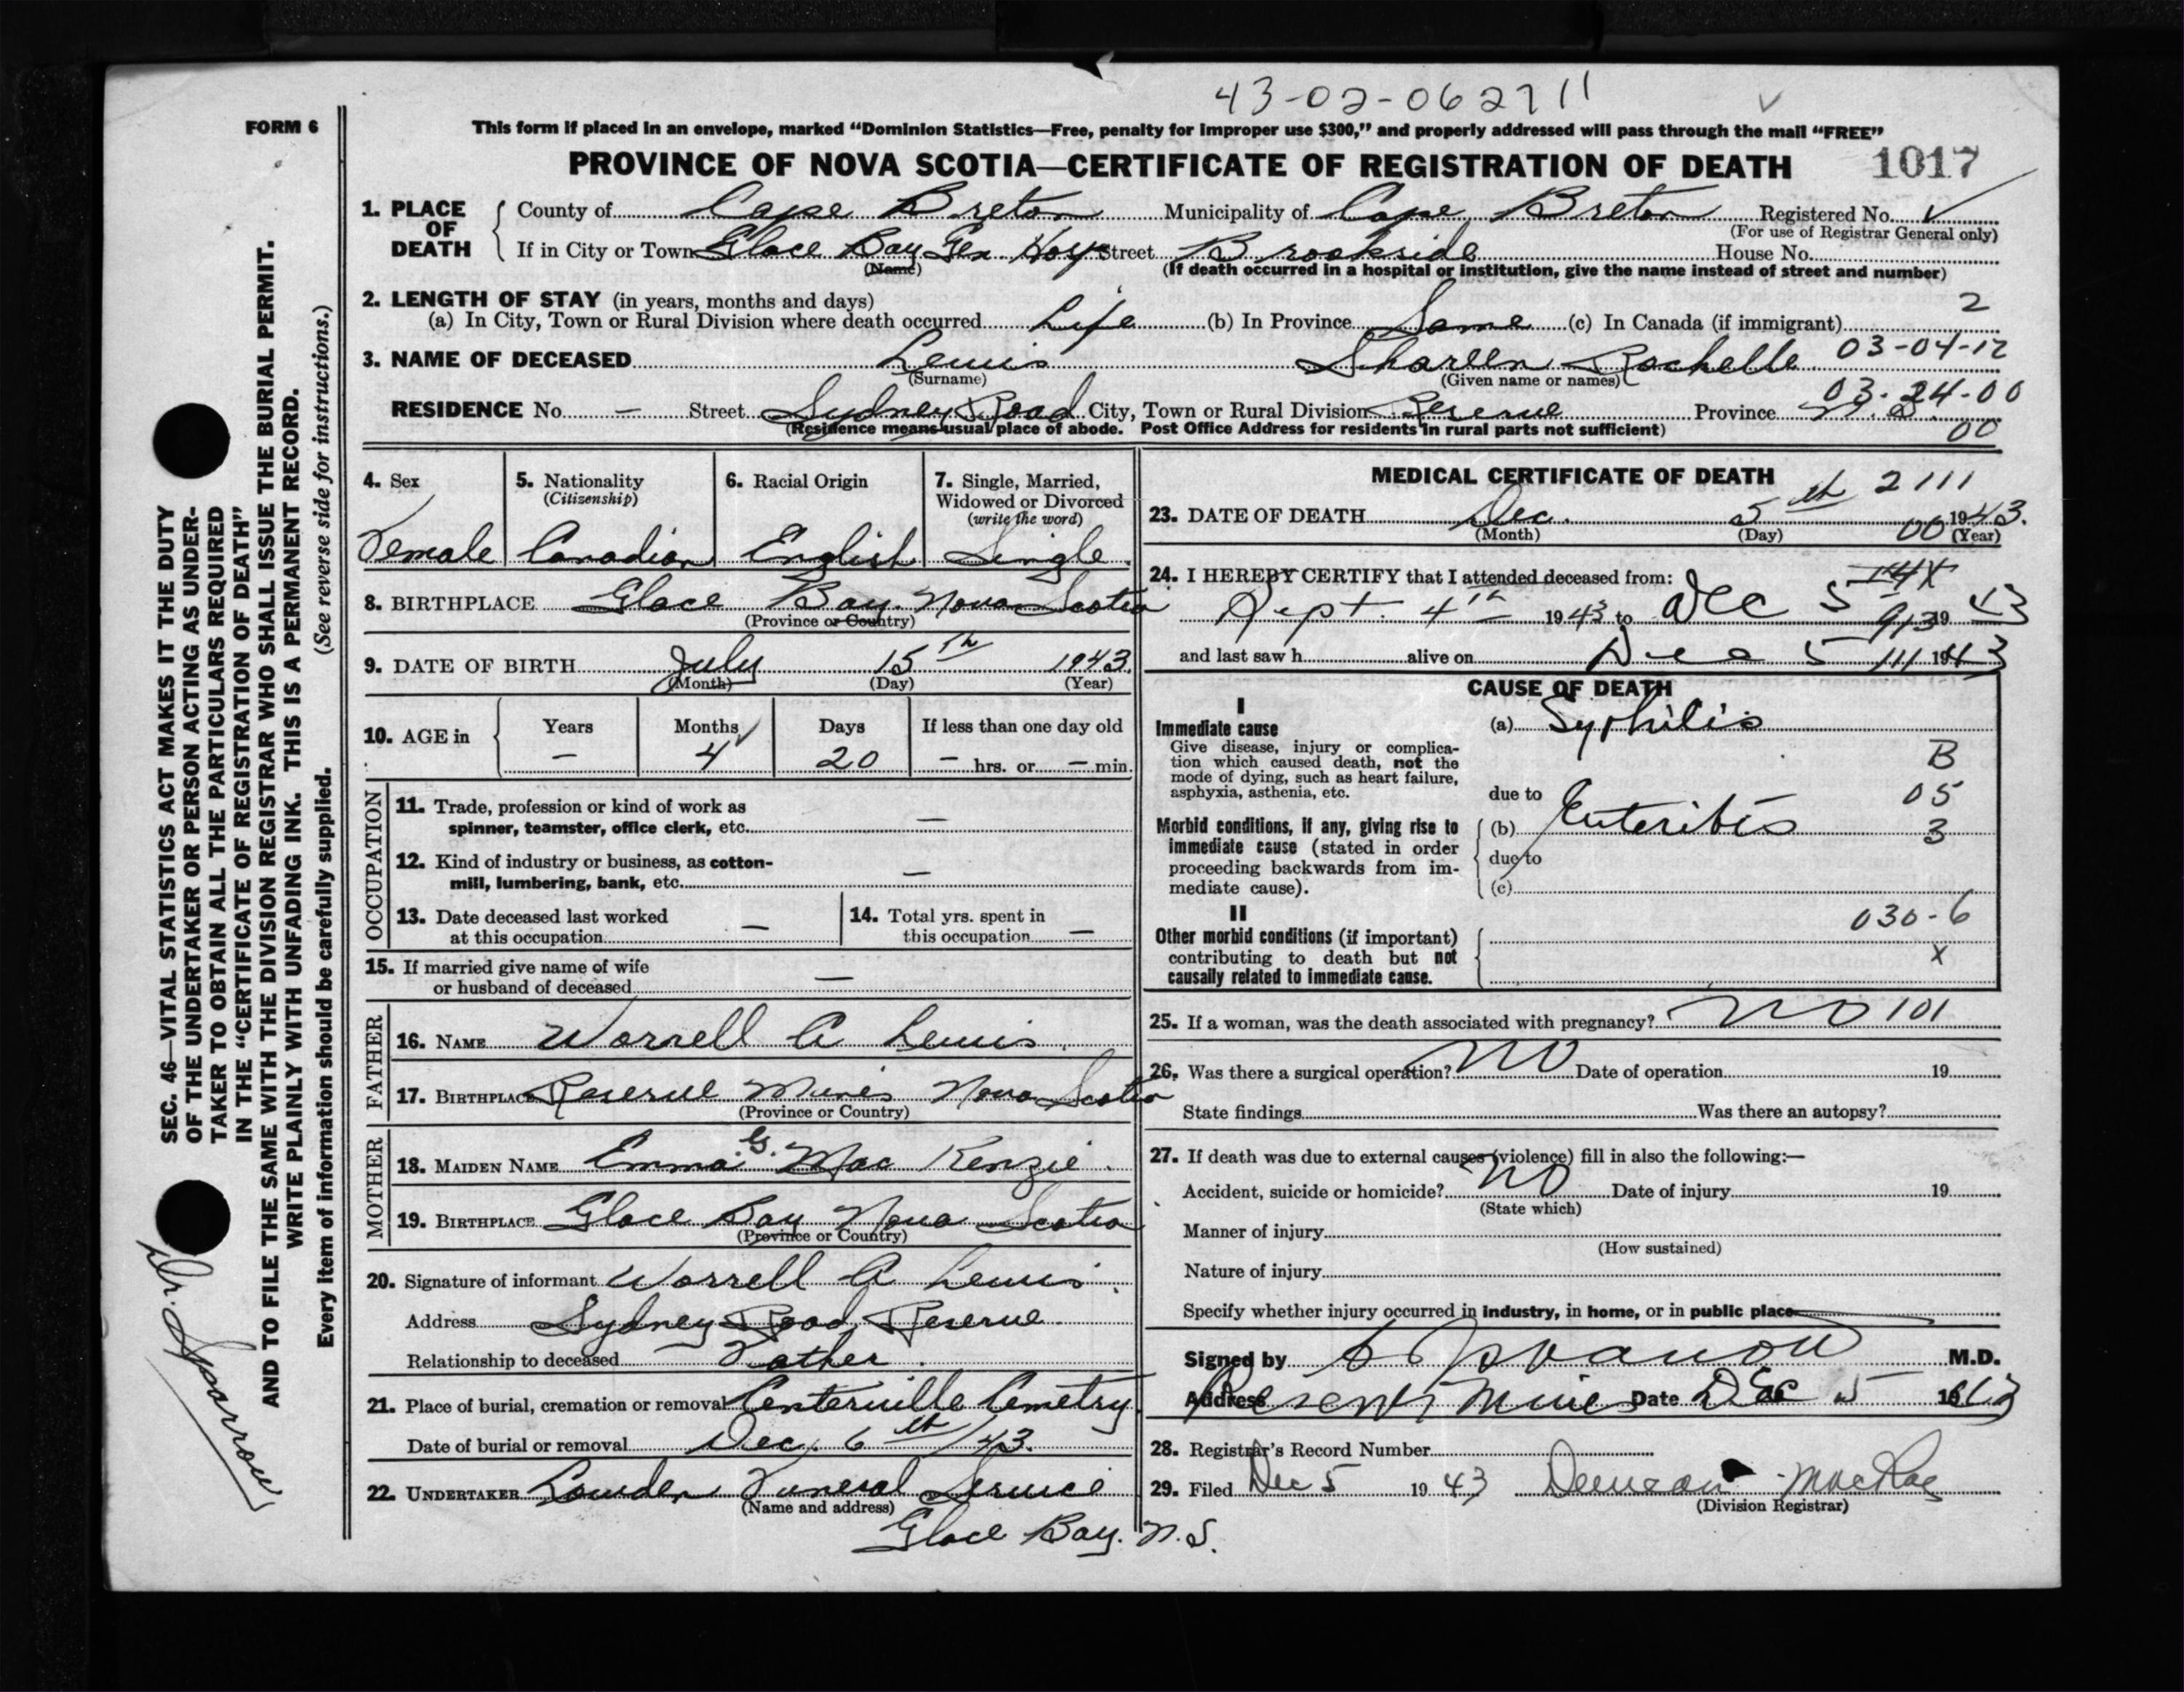 43-02-062711
FORM 6
This form if placed in an envelope, marked “Dominion Statistics—Free, penalty for improper use $300,” and properly addressed will pass through the mail “FREE”
PROVINCE OF NOVA SCOTIA—CERTIFICATE OF REGISTRATION OF DEATH 1017
1. PLACE OF DEATH
County of Cape Breton Municipality of Cape Breton Registered No.
(For use of Registrar General only)
If in City or Town Glace Bay Gen Hosp Street Brookside House No.
(Name) (If death occurred in a hospital or institution, give the name instead of street and number)
2. LENGTH OF STAY (in years, months and days) 2
(a) In City, Town or Rural Division where death occurred Life (b) In Province Same (c) In Canada (if immigrant)
3. NAME OF DECEASED Lewis Shareen Rochelle 03-04-12
(Surname) (Given name or names)
03-24-00
RESIDENCE No. — Street Sydney Road City, Town or Rural Division Reserve Province N.S.
(Residence means usual place of abode. Post Office Address for residents in rural parts not sufficient) 00
4. Sex 5. Nationality (Citizenship) 6. Racial Origin 7. Single, Married, Widowed or Divorced (write the word)
Female Canadian English Single
8. BIRTHPLACE Glace Bay. Nova Scotia
(Province or Country)
9. DATE OF BIRTH July 15th 1943.
(Month) (Day) (Year)
10. AGE in Years Months Days If less than one day old
— 4 20 — hrs. or — min.
OCCUPATION
11. Trade, profession or kind of work as
spinner, teamster, office clerk, etc. —
12. Kind of industry or business, as cotton-
mill, lumbering, bank, etc. —
13. Date deceased last worked
at this occupation —
14. Total yrs. spent in
this occupation —
15. If married give name of wife
or husband of deceased —
FATHER
16. NAME Worrell A Lewis.
17. BIRTHPLACE Reserve Mines Nova Scotia
(Province or Country)
MOTHER
18. MAIDEN NAME Emma G. Mac Kenzie.
19. BIRTHPLACE Glace Bay Nova Scotia
(Province or Country)
20. Signature of informant Worrell A Lewis.
Address Sydney Road, Reserve
Relationship to deceased Father.
21. Place of burial, cremation or removal Centerville Cemetry.
Date of burial or removal Dec. 6th/43.
22. UNDERTAKER Lowden Funeral Service
(Name and address)
Glace Bay. N.S.
MEDICAL CERTIFICATE OF DEATH
2111
23. DATE OF DEATH Dec. 5th 1943.
(Month) (Day) 00 (Year)
24. I HEREBY CERTIFY that I attended deceased from:
Sept. 4th 1943 to Dec 5 1943
913
and last saw h alive on Dec 5 111 1943
CAUSE OF DEATH
I
Immediate cause (a) Syphilis
Give disease, injury or complica-
tion which caused death, not the
mode of dying, such as heart failure,
asphyxia, asthenia, etc.
B
due to 05
Morbid conditions, if any, giving rise to
immediate cause (stated in order
proceeding backwards from im-
mediate cause).
(b) Enteritis 3
due to
(c)
II
030-6
Other morbid conditions (if important)
contributing to death but not
causally related to immediate cause.
X
25. If a woman, was the death associated with pregnancy? NO 101
26. Was there a surgical operation? NO Date of operation 19
State findings Was there an autopsy?
27. If death was due to external causes (violence) fill in also the following:—
Accident, suicide or homicide? NO Date of injury 19
(State which)
Manner of injury
(How sustained)
Nature of injury
Specify whether injury occurred in industry, in home, or in public place
Signed by M.D.
Address Reserve Mines Date Dec 5 1943
28. Registrar's Record Number
29. Filed Dec 5 1943 MacRae
(Division Registrar)
SEC. 46—VITAL STATISTICS ACT MAKES IT THE DUTY
OF THE UNDERTAKER OR PERSON ACTING AS UNDER-
TAKER TO OBTAIN ALL THE PARTICULARS REQUIRED
IN THE “CERTIFICATE OF REGISTRATION OF DEATH”
AND TO FILE THE SAME WITH THE DIVISION REGISTRAR WHO SHALL ISSUE THE BURIAL PERMIT.
WRITE PLAINLY WITH UNFADING INK. THIS IS A PERMANENT RECORD.
(See reverse side for instructions.)
Every item of information should be carefully supplied.
Dr. Sparrow